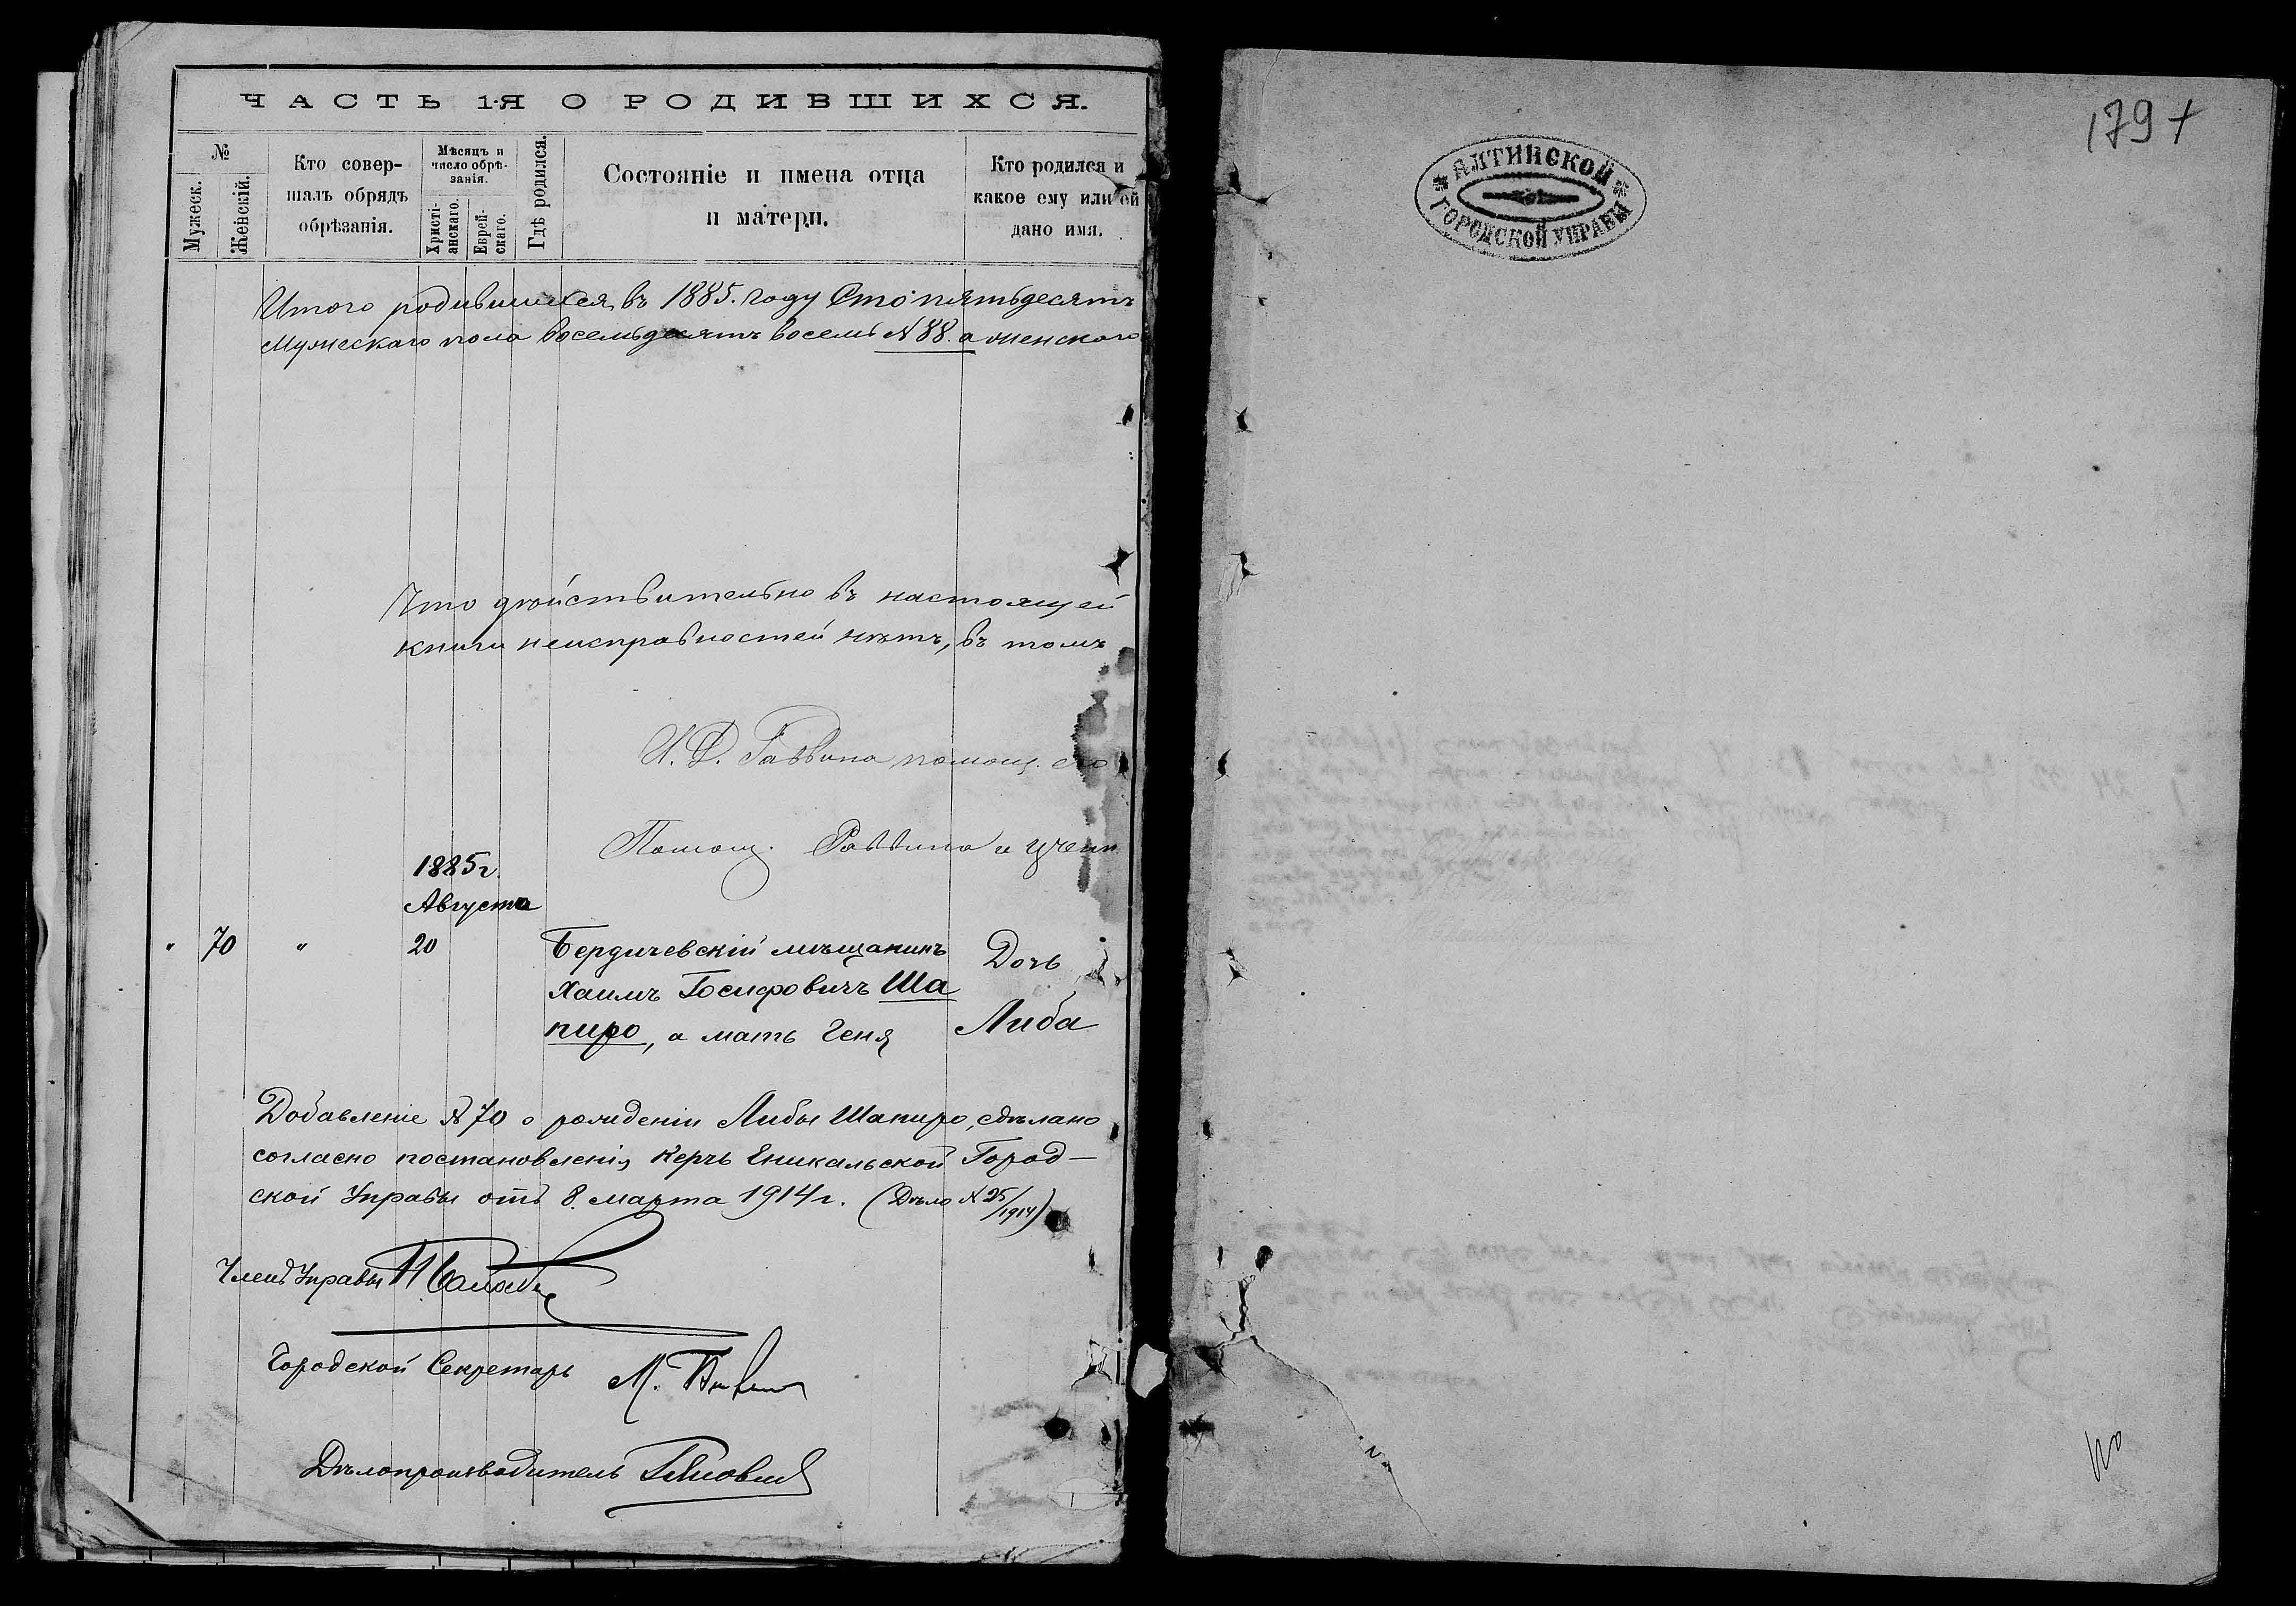 ЧАСТЬ 1-Я О РОДИВШИХСЯ.
№
Мужеск.
Женскій.
Кто совер-
шалъ обрядъ
обрѣзанія.
Мѣсяцъ и
число обрѣ-
занія.
Христі-
анскаго.
Еврей-
скаго.
Гдѣ родился.
Состояніе и имена отца
и матери.
Кто родился и
какое ему или ей
дано имя.
Итого родившихся въ 1885. году Сто пятьдесятъ
Мужескаго пола восемьдесятъ восемь № 88. а женскаго
Что дѣйствительно въ настоящей
книги неисправностей нѣтъ, въ томъ
И. Д. Раввина помощ. его
Помощ. Раввина и учен
1885 г.
Августа
" 70 " 20 Бердичевскій мѣщанинъ Дочь
Хаимъ Іосифовичъ Ша
пиро, а мать Геня Либа
Добавленіе № 70 о рожденіи Либы Шапиро, сдѣлано
согласно постановленія Керчь Еникальской Город-
ской Управы отъ 8. марта 1914 г. (Дѣло № 25/1914)
Членъ Управы
Городской Секретарь М.
Дѣлопроизводитель
179
ЯЛТИНСКОЙ
ГОРОДСКОЙ УПРАВЫ